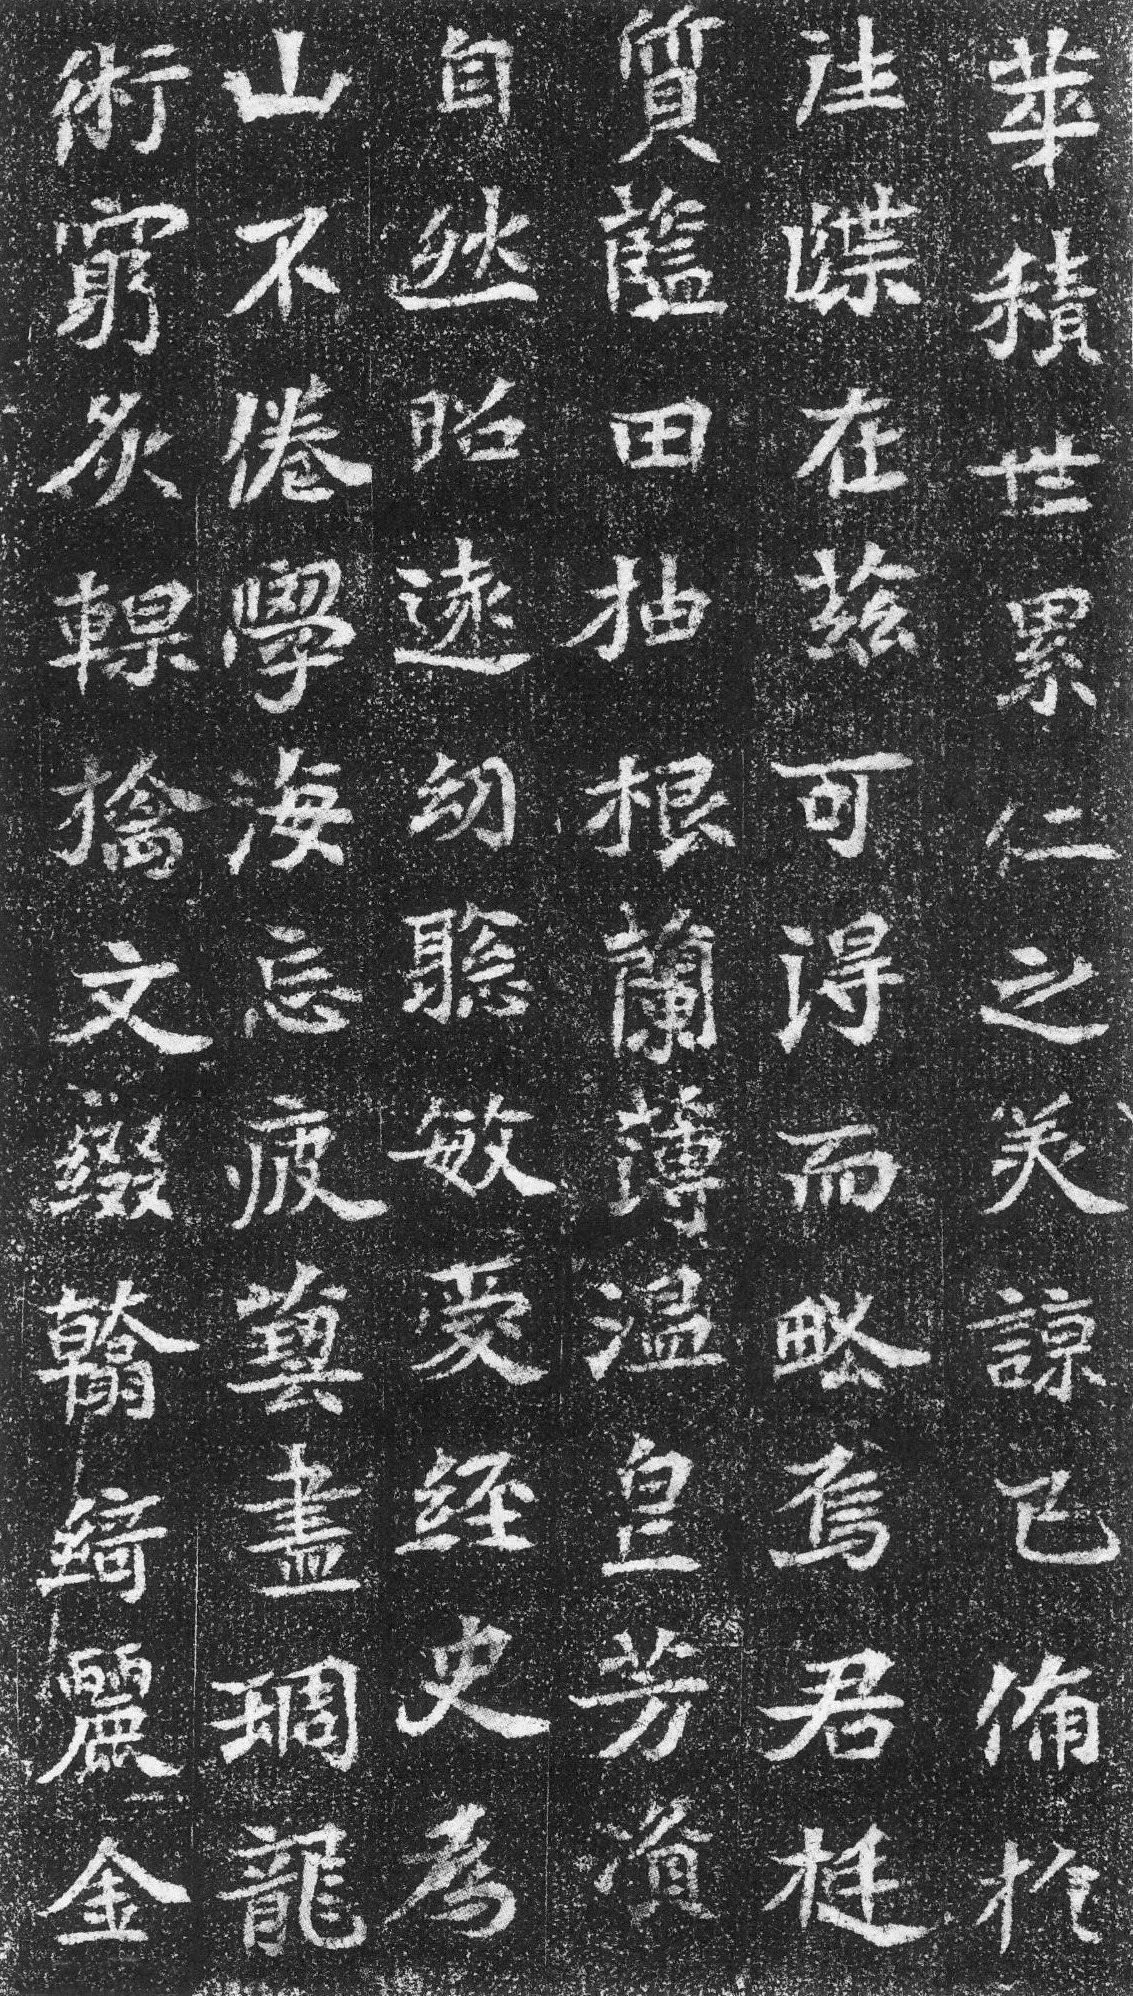 華積世累仁之美諒已備於
往諜在茲可得而略焉君挺
質藍田抽根蘭薄溫皇芳資
自然昭遠幼聰敏愛經史為
山不倦學海忘疲藝盡琱龍
術窮炙輠摛文綴翰綺麗金